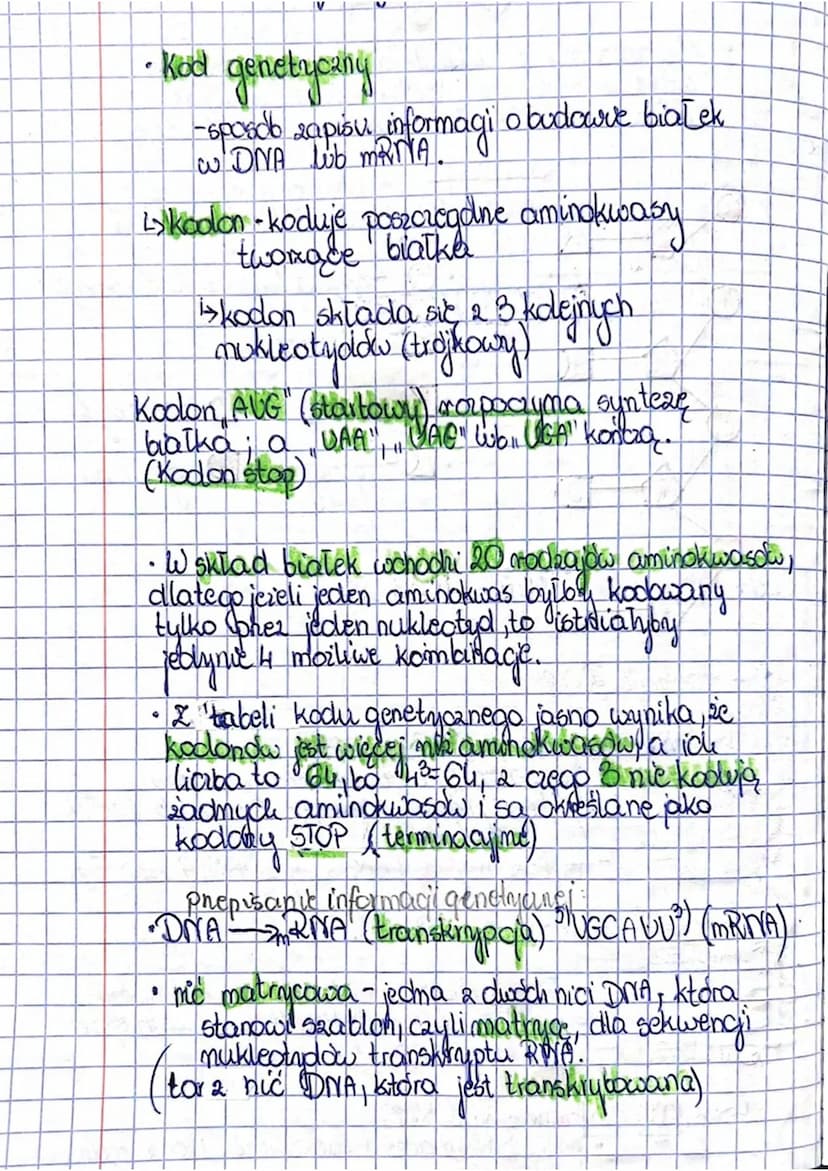 • Kod genetyczny
-sposób zapisu informacji o budowie białek
w DNA lub mRNA.
↳kodon - koduje poszczególne aminokwasy
tworzące białka
↳kodon składa się z 3 kolejnych
nukleotydów (trójkowy)
Kodon „AUG" (startowy) rozpoczyna syntezę
białka; a „UAA", „UAG" lub „UGA" kończą.
(Kodon stop)
• W skład białek wchodzi 20 rodzajów aminokwasów,
dlatego jeżeli jeden aminokwas byłby kodowany
tylko przez jeden nukleotyd, to istniałyby
jedynie 4 możliwe kombinacje.
• Z tabeli kodu genetycznego jasno wynika, że
kodonów jest więcej niż aminokwasów, a ich
liczba to 64, bo 4³=64, z czego 3 nie kodują
żadnych aminokwasów i są określane jako
kodony STOP (terminacyjne)
przepisanie informacji genetycznej
• DNA → mRNA (transkrypcja) 5'UGCAUU3') (mRNA)
• nić matrycowa - jedna z dwóch nici DNA, która
stanowi szablon, czyli matrycę, dla sekwencji
nukleotydów transkryptu RNA.
(to ta z nić DNA, która jest transkrybowana)